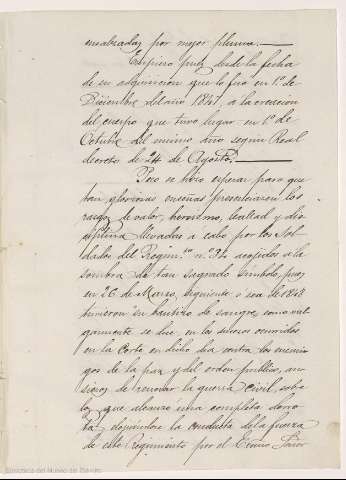 ensalzadas por mejor pluma.
Empiezo pues desde la fecha
de su adquisicion que lo fué en 1º de
Diciembre del año 1847, a la creacion
del cuerpo que tuvo lugar en 1º de
Octubre del mismo año segun Real
decreto de 24 de Agosto.
Poco se hizo esperar para que
tan gloriosas enseñas presenciaran los
rasgos de valor, heroismo, lealtad y dis
ciplina llevados a cabo por los Sol
dados del Regim.to n. acogidos a la
sombra de tan sagrado simbolo, pues
en 26 de Marzo, siguiente, ó sea de 1848
tuvieron su bautizo de sangre, como vul
garmente se dice, en los sucesos ocurridos
en la Corte en dicho dia contra los enemi
gos de la paz y del orden publico, an
siosos de renovar la guerra civil, sobre
los que alcanzó una completa derro
ta, elogiandose la conducta de la fuerza
de este Regimiento por el Exmo Señor
Biblioteca del Museo del Ejército